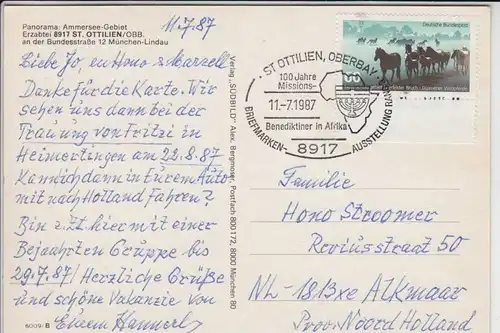 Panorama: Ammersee-Gebiet
Erzabtei 8917 ST. OTTILIEN/OBB.
an der Bundesstraße 12 München-Lindau
11.7.87
Liebe Jo, en Hono + Marzell
Danke für die Karte. Wir
sehen uns dann bei der
Trauung von Fritzi in
Heimertingen am 22.8.87
Kann ich dann in Eurem Auto
mit nach Holland fahren?
Bin z.Zt. hier mit einer
Bejahrten Gruppe bis
29.7.87! Herzliche Grüße
und schöne Vakanzie von
Eurem Hannerl
6009: B
Verlag „SÜDBILD" Alex. Bergmoser, Postfach 800172, 8000 München 80
ST. OTTILIEN, OBERBAY.
100 Jahre
Missions-
11.-7.1987
Benediktiner in Afrika
BRIEFMARKEN-
AUSSTELLUNG
8917
Deutsche Bundespost
Familie
Hono Stroomer
Reviusstraat 50
NL-1813xe Alkmaar
Prov. Noord Holland